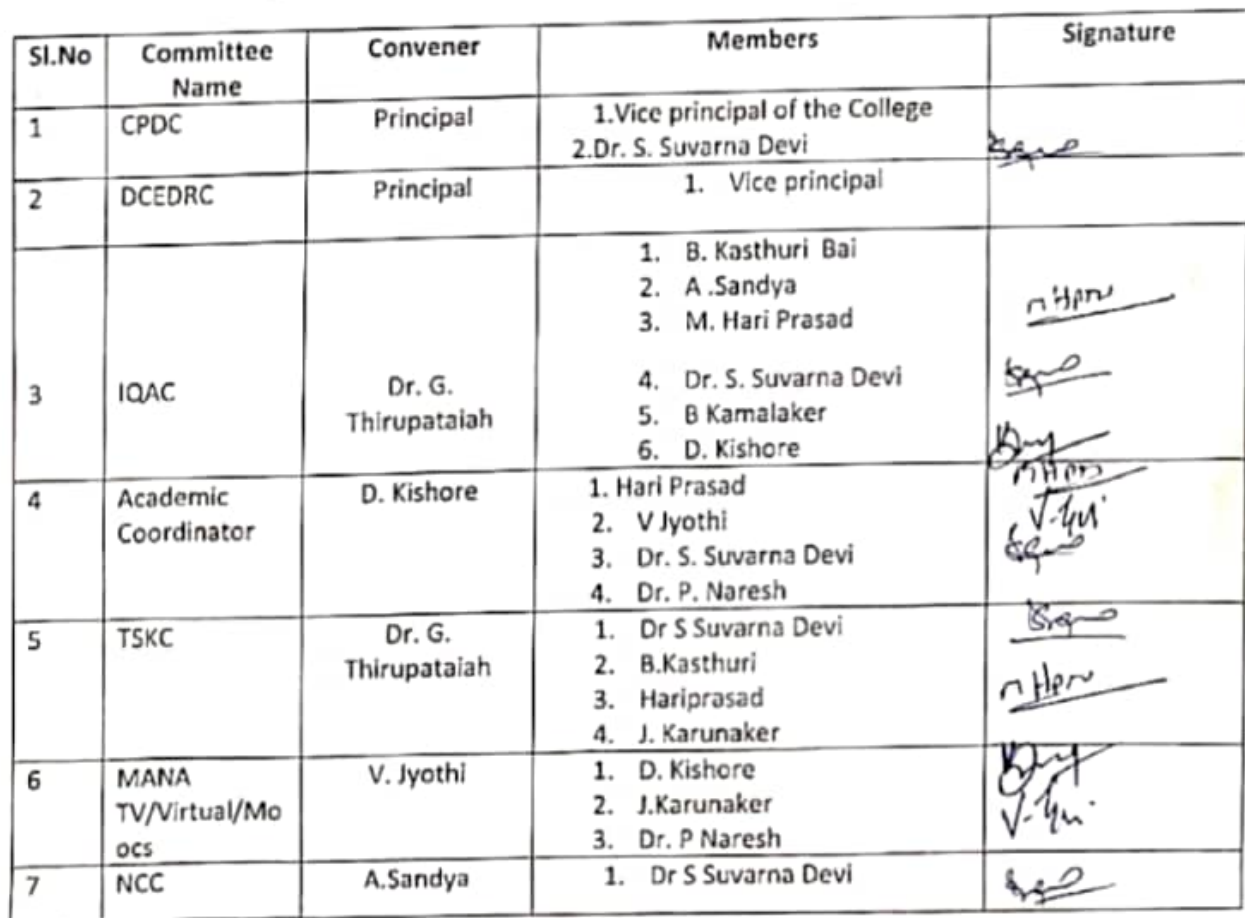 Sl.No Committee Name Convener Members Signature
1 CPDC Principal 1.Vice principal of the College
2.Dr. S. Suvarna Devi
2 DCEDRC Principal 1. Vice principal
3 IQAC Dr. G. Thirupataiah 1. B. Kasthuri Bai
2. A .Sandya
3. M. Hari Prasad
4. Dr. S. Suvarna Devi
5. B Kamalaker
6. D. Kishore
4 Academic Coordinator D. Kishore 1. Hari Prasad
2. V Jyothi
3. Dr. S. Suvarna Devi
4. Dr. P. Naresh
5 TSKC Dr. G. Thirupataiah 1. Dr S Suvarna Devi
2. B.Kasthuri
3. Hariprasad
4. J. Karunaker
6 MANA TV/Virtual/Moocs V. Jyothi 1. D. Kishore
2. J.Karunaker
3. Dr. P Naresh
7 NCC A.Sandya 1. Dr S Suvarna Devi